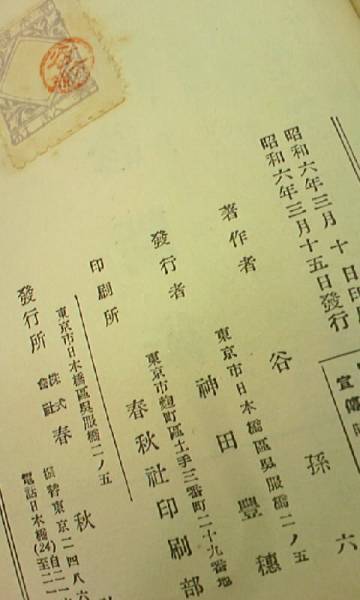 昭和六年三月十日印
昭和六年三月十五日發行
著作者 谷孫六
東京市日本橋區吳服橋二ノ五
發行者 神田豐穗
東京市麴町區土手三番町二十九番地
印刷所 春秋社印刷部
東京市日本橋區吳服橋二ノ五
發行所 株式會社 春秋
振替東京二四八六
電話日本橋(24)自二二
至二
宣傳